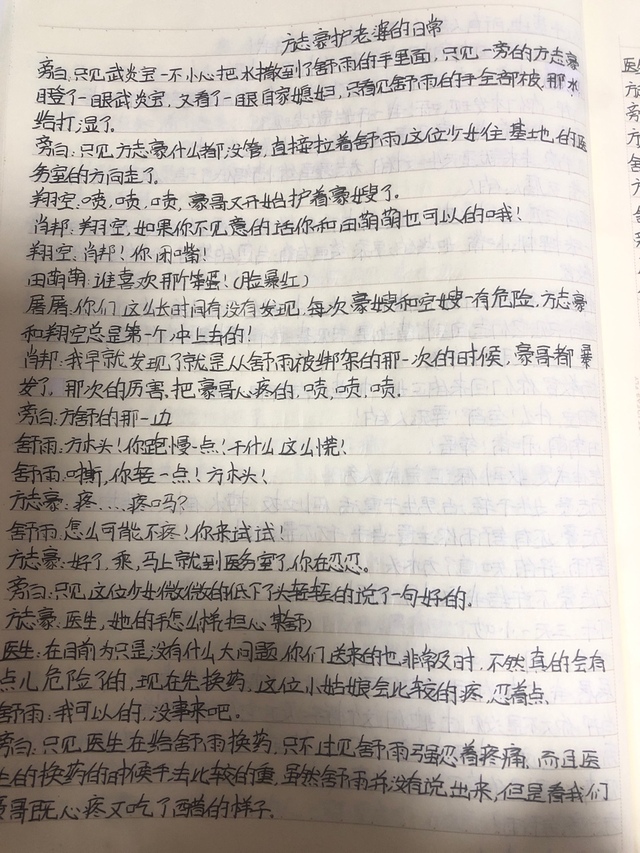 方志豪护老婆的日常
旁白:只见武炎宝一不小心把水撒到了舒雨的手里面,只见一旁的方志豪
瞪了一眼武炎宝,又看了一眼自家媳妇,只看见舒雨的手全部被,那水
给打湿了。
旁白:只见方志豪什么都没管,直接拉着舒雨,这位少女往 基地,的医
务室的方向走了。
翔空:啧,啧,啧,豪哥又开始护着豪嫂了。
肖邦:翔空,如果你不见意的话你和田萌萌也可以的哦!
翔空:肖邦!你闭嘴!
田萌萌:谁喜欢那个笨蛋!(脸暴红)
屠屠:你们 这么长时间有没有发现,每次豪嫂和空嫂一有危险,方志豪
和翔空总是第一个,冲上去的!
肖邦:我早就发现了就是从舒雨被绑架的那一次的时候,豪哥都 暴
发了,那次的厉害,把豪哥心疼的,啧,啧,啧.
旁白:方舒的那一边
舒雨:方木头!你跑慢一点!干什么这么慌!
舒雨:嘶,你轻一点!方木头!
方志豪:疼....疼吗?
舒雨:怎么可能不疼!你来试试!
方志豪:好了,乖,马上就到医务室了,你在忍忍。
旁白:只见这位少女微微的低下了头轻轻的说了一句好的.
方志豪:医生,她的手怎么样,担心 舒)
医生:在目前为只是没有什么大问题,你们送来的也非常及时,不然真的会有
点儿危险了的,现在先换药,这位小姑娘会比较的疼,忍着点.
舒雨:我可以的,没事来吧。
旁白:只见医生在给舒雨换药,只不过见舒雨强忍着疼痛,而且医
生的换药的时候手法比较的重,虽然舒雨并没有说出来,但是看我们
豪哥既心疼又吃了醋的样子.
医
方
旁
方
舒